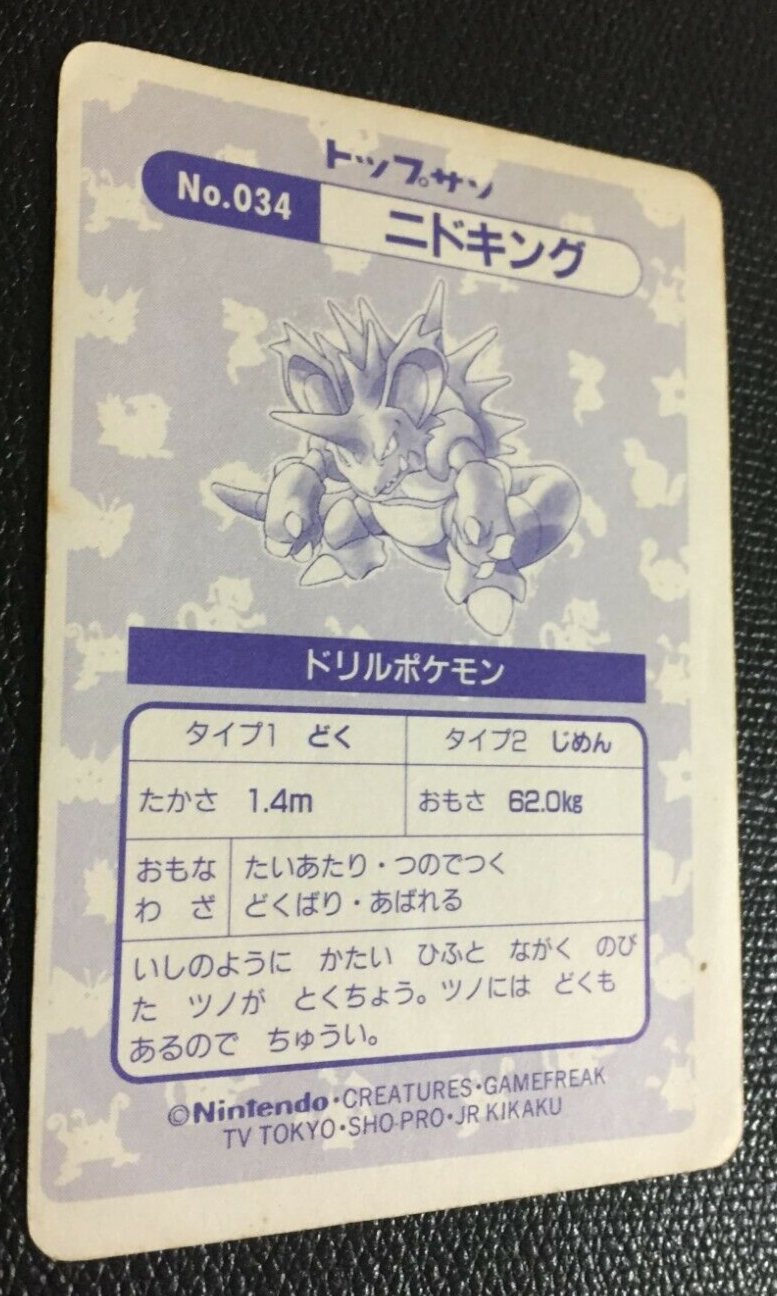 トップサン
No.034 ニドキング
ドリルポケモン
タイプ1 どく タイプ2 じめん
たかさ 1.4m おもさ 62.0kg
おもな たいあたり・つのでつく
わざ どくばり・あばれる
いしのように かたい ひふと ながく のび
た ツノが とくちょう。ツノには どくも
あるので ちゅうい。
©Nintendo・CREATURES・GAMEFREAK
TV TOKYO・SHO-PRO・JR KIKAKU